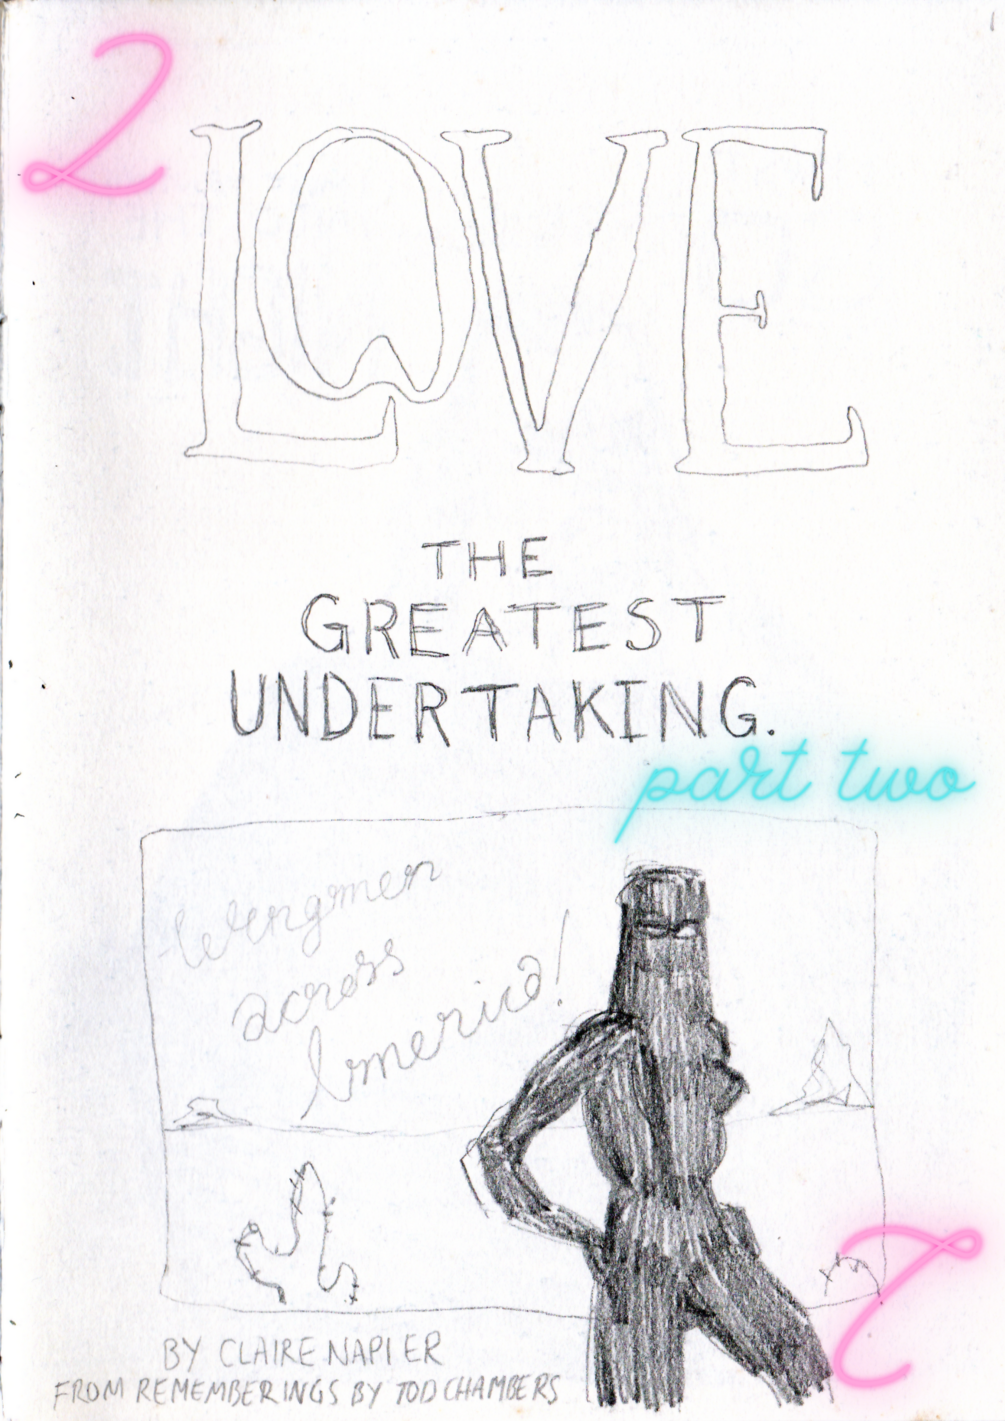 2
LOVE
THE
GREATEST
UNDERTAKING.
part two
Wingmen
across
America!
BY CLAIRE NAPIER
FROM REMEMBERINGS BY TOD CHAMBERS
2